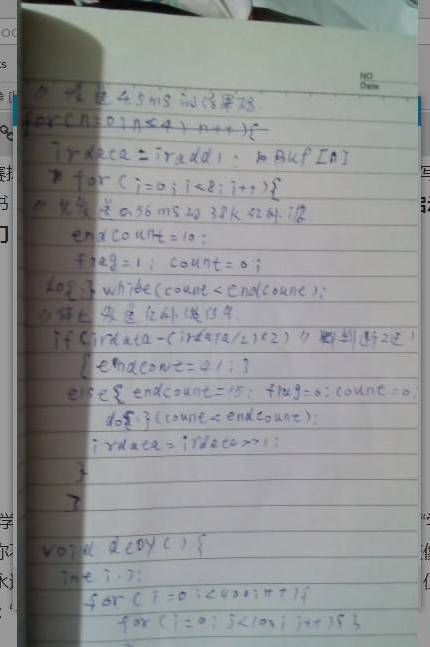 NO.
Date
// 发送4.5ms的结果码.
for(n=0;n≤4;n++){
irdata=iradd1; Buf[n]
for(i=0;i<8;i++){
// 先发送0.56ms的38K红外
endcount=10;
flag=1; count=0;
do{ } while(count<endcount);
// 停止发送红外信号
if(irdata-(irdata/2)*2) //
{endcount=41;}
else{ endcount=15; flag=0; count=0;
do{ }(count<endcount);
irdata=irdata>>1;
}
}
void delay(){
int i,j;
for(i=0;i<400;i++){
for(i=0; j<10; j++){}